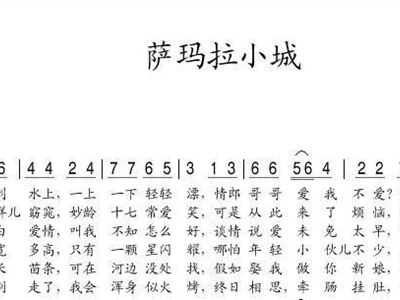 萨玛拉小城
6 | 4 4 2 4 | 7 7 6 5 | 3 1 3 | 6 6 5 6 4 | 2 2
水上，一上 一下 轻轻 漂，情郎 哥哥 爱 我 不 爱？
群儿 窈窕，妙龄 十七 常爱 笑，可是 从此 来 了 烦恼，
白 爱情，叫我 不知 怎么 好，谈情 说爱 未免 太早，
宽 多高，只有 一颗 星闪 耀，哪怕 年轻 小 伙儿 不少，
长 苗条，可在 河边 没处 找，假如 娶我 做你 新娘，
走了，我会 浑身 似火 烤，终日 相思，牵肠 挂肚，